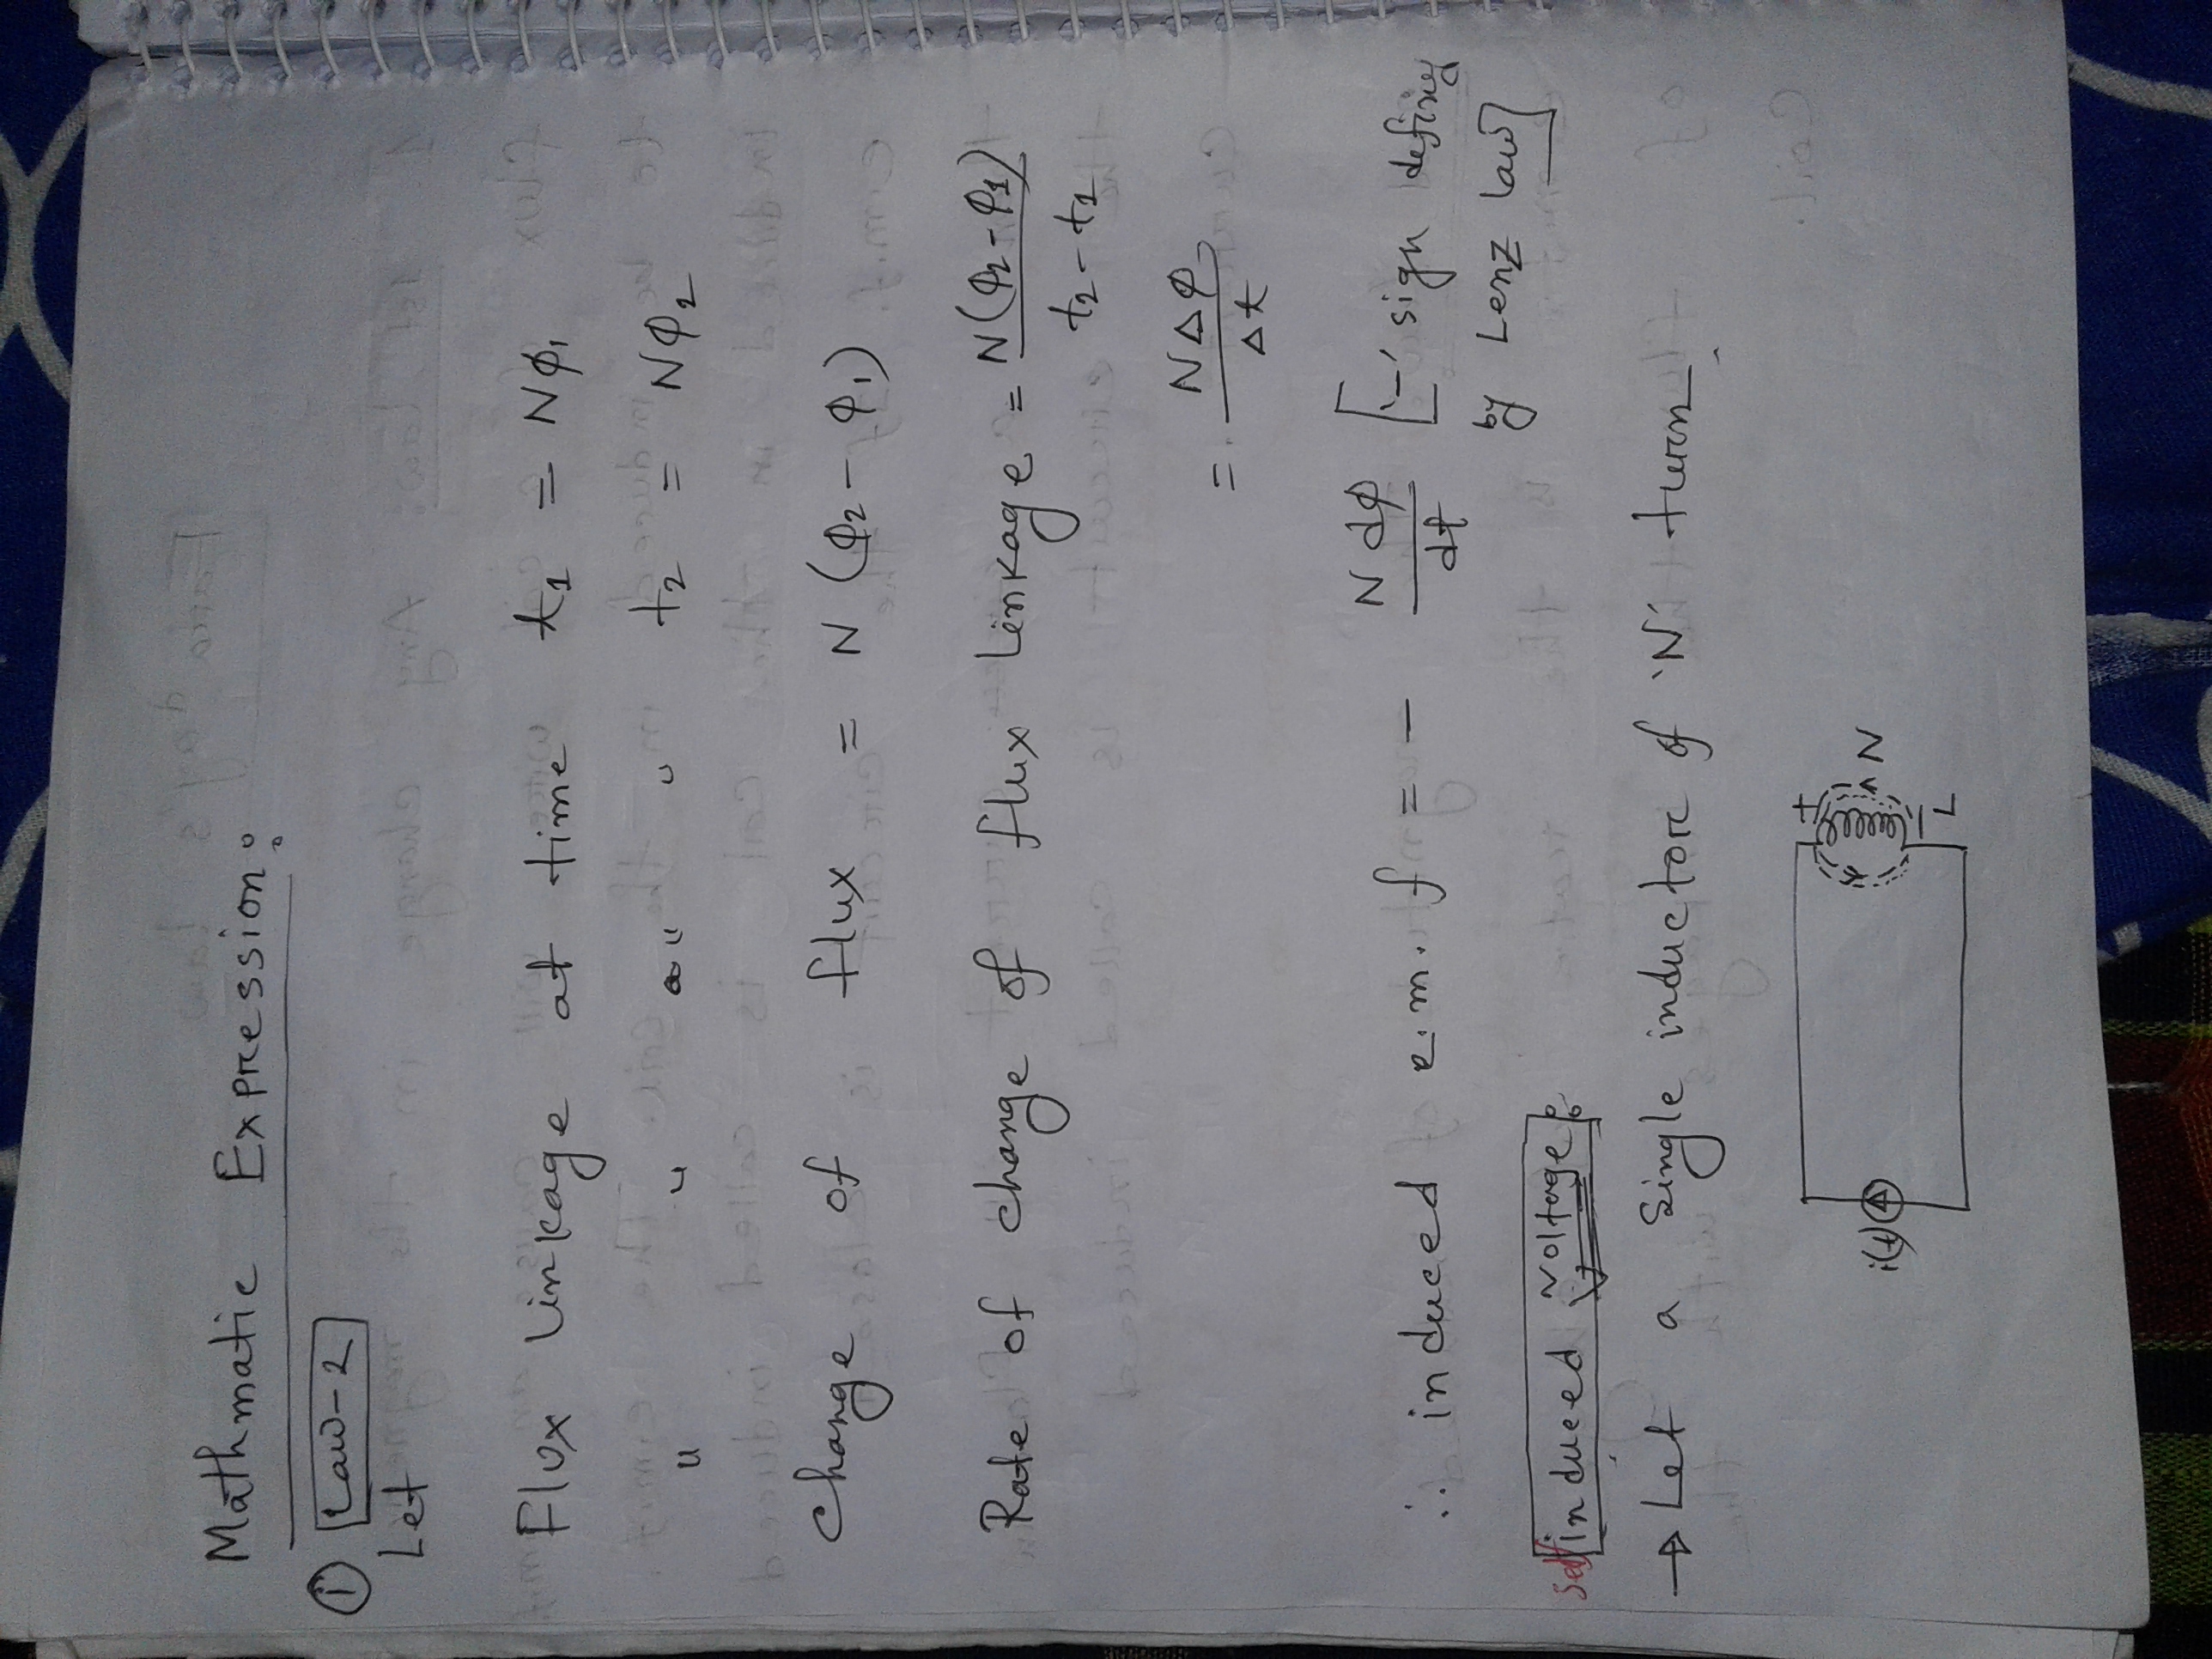 Mathmatic Expression:
① Law-2
Let
Flux linkage at time t₁ = Nφ₁
" " " " t₂ = Nφ₂
Change of flux = N (φ₂ - φ₁)
Rate of change of flux linkage = N(φ₂-φ₁) / t₂-t₁
= NΔφ / Δt
∴ induced e.m.f = - N dφ / dt ['-' sign defing
by Lenz law]
Self induced voltage:
→ Let a single inductor of 'N' turn
i(t) + N
- L